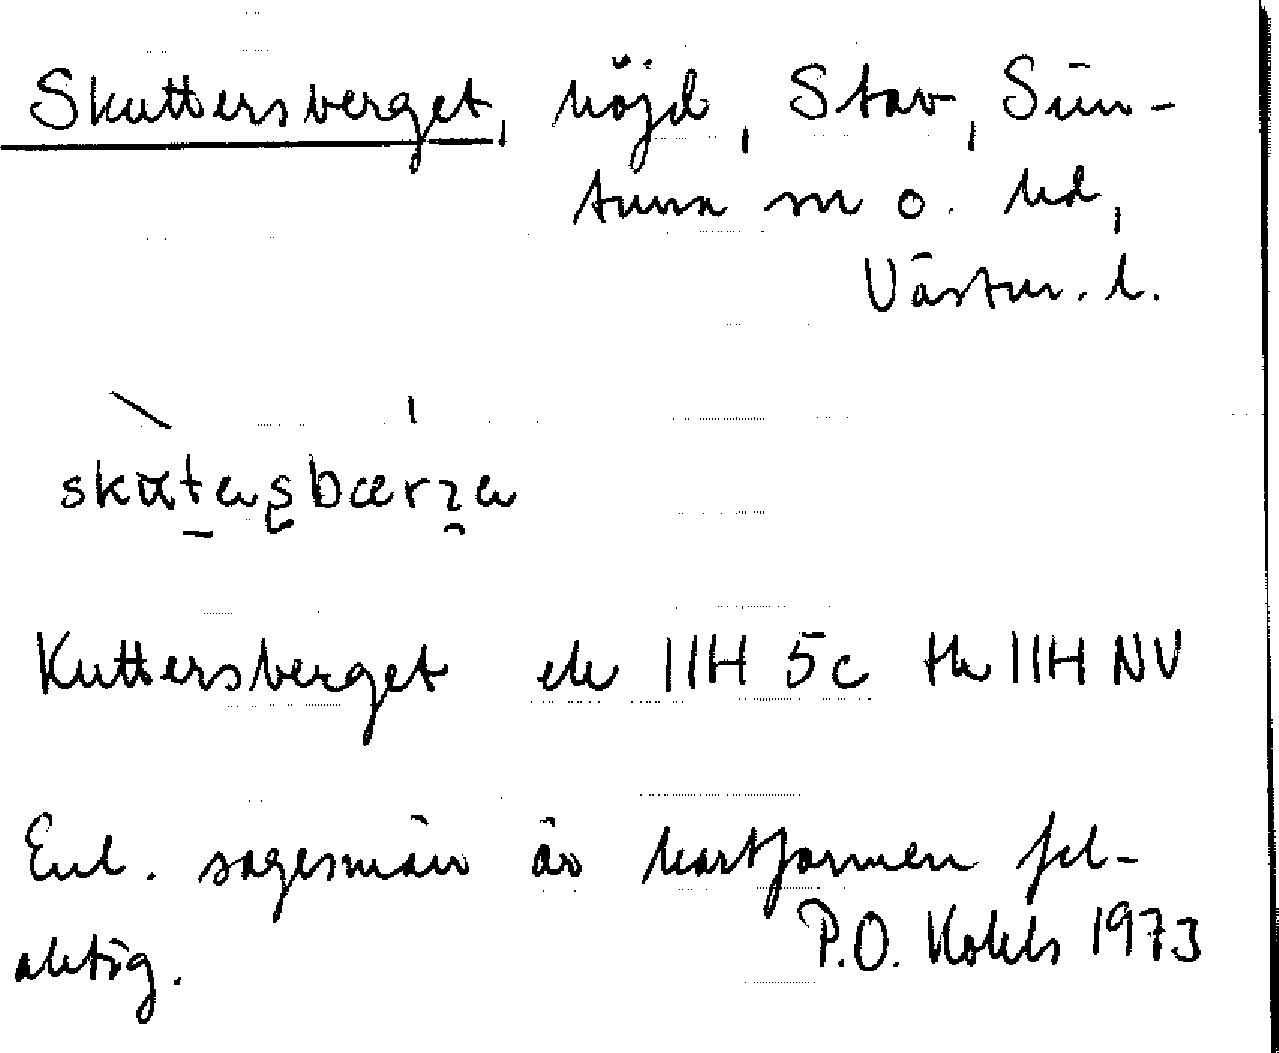 Skuttersberget, höjd, Stav, Sim-
tuna sn o. hd,
Västm. l.
Kuttersberget ek 11H 5c tk 11H NV
Enl. sagesmän är kartformen fel-
aktig.
P.O. Kohls 1973